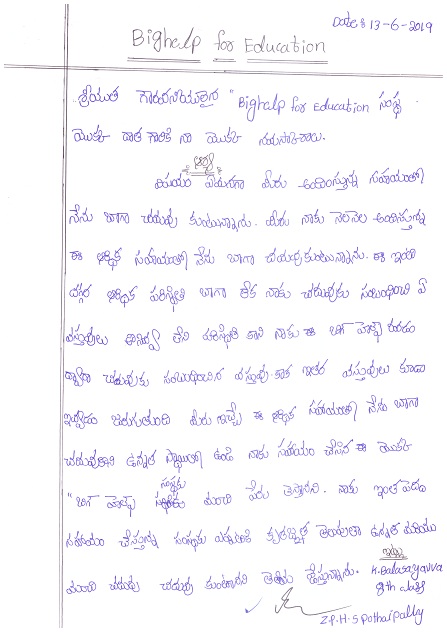 Date : 13-6-2019
Bighelp for Education
శ్రీయుత గౌరవనీయులైన "Bighelp for Education సంస్థ
యొక్క దాత గారికి నా యొక్క నమస్కారాలు.
ఆర్య
విషయం ఏమనగా మీరు అందిస్తున్న సహాయంతో
నేను బాగా చదువు కుంటున్నాను. మీరు నాకు నెలనెల అందిస్తున్న
ఈ ఆర్థిక సహాయంతో నేను బాగా చదువుకుంటున్నాను. ఈ ఇంటి
దగ్గర ఆర్థిక పరిస్థితి బాగా లేక నాకు చదువుకు సంబంధించి ఏ
వస్తువులు లేని పరిస్థితి కాని నాకు ఈ బిగ్ హెల్ప్
ద్వారా చదువుకు సంబంధించిన వస్తువు కాక ఇతర వస్తువులు కూడా
ఇవ్వడం జరుగుతుంది మీరు ఇచ్చే ఈ ఆర్థిక సహాయంతో నేను బాగా
చదువుకొని ఉన్నత స్థాయిలో ఉండి నాకు సహాయం చేసిన ఈ యొక్క
"బిగ్ హెల్ప్ సంస్థకు మంచి పేరు తెస్తానని. నాకు ఇంత పెద్ద
సహాయం చేస్తున్న సంస్థకు కృతజ్ఞత తెలుపుతూ ఉన్నత మరియు
మంచి చదువు చదువు కుంటానని తెలియ చేస్తున్నాను.
ఇట్లు
K. Balasayavva
8th class
Z.P.H.S Pothaipally